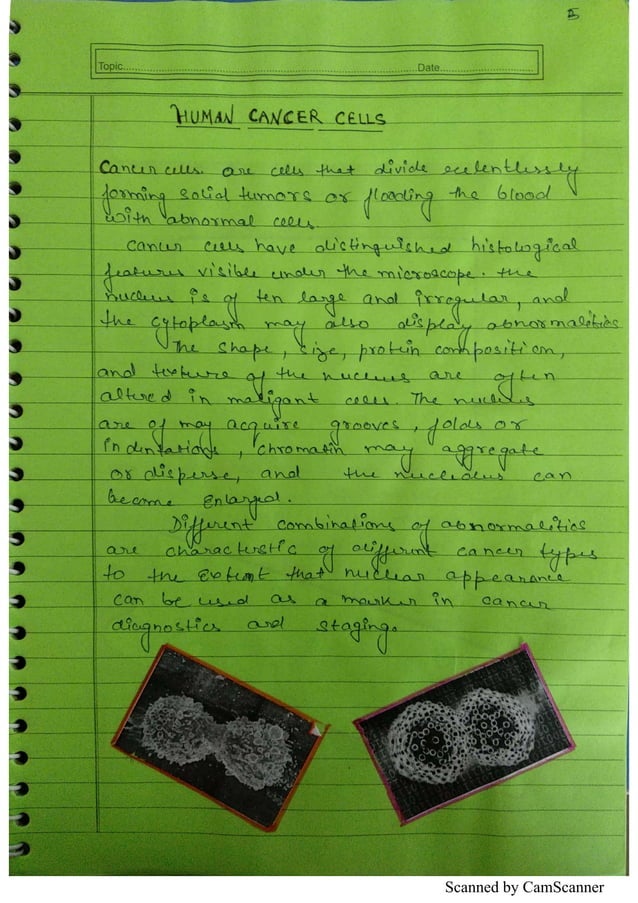 Topic.......... Date..........
HUMAN CANCER CELLS
Cancer cells. are cells that divide relentlessly
forming solid tumors or flooding the blood
with abnormal cells.
Cancer cells have distinguished histological
features visible under the microscope. the
nucleus is of ten large and irregular, and
the cytoplasm may also display abnormalities
The shape, size, protein composition,
and texture of the nucleus are often
altered in maligant cells. The nucleus
are of may acquire grooves, folds or
indentations, chromatin may aggregate
or disperse, and the nucleolus can
become Enlarged.
Different combinations of abnormalities
are characterstic of different cancer types
to the Extent that nuclear appearance
can be used as a marker in cancer
diagnostics and staging.
Scanned by CamScanner